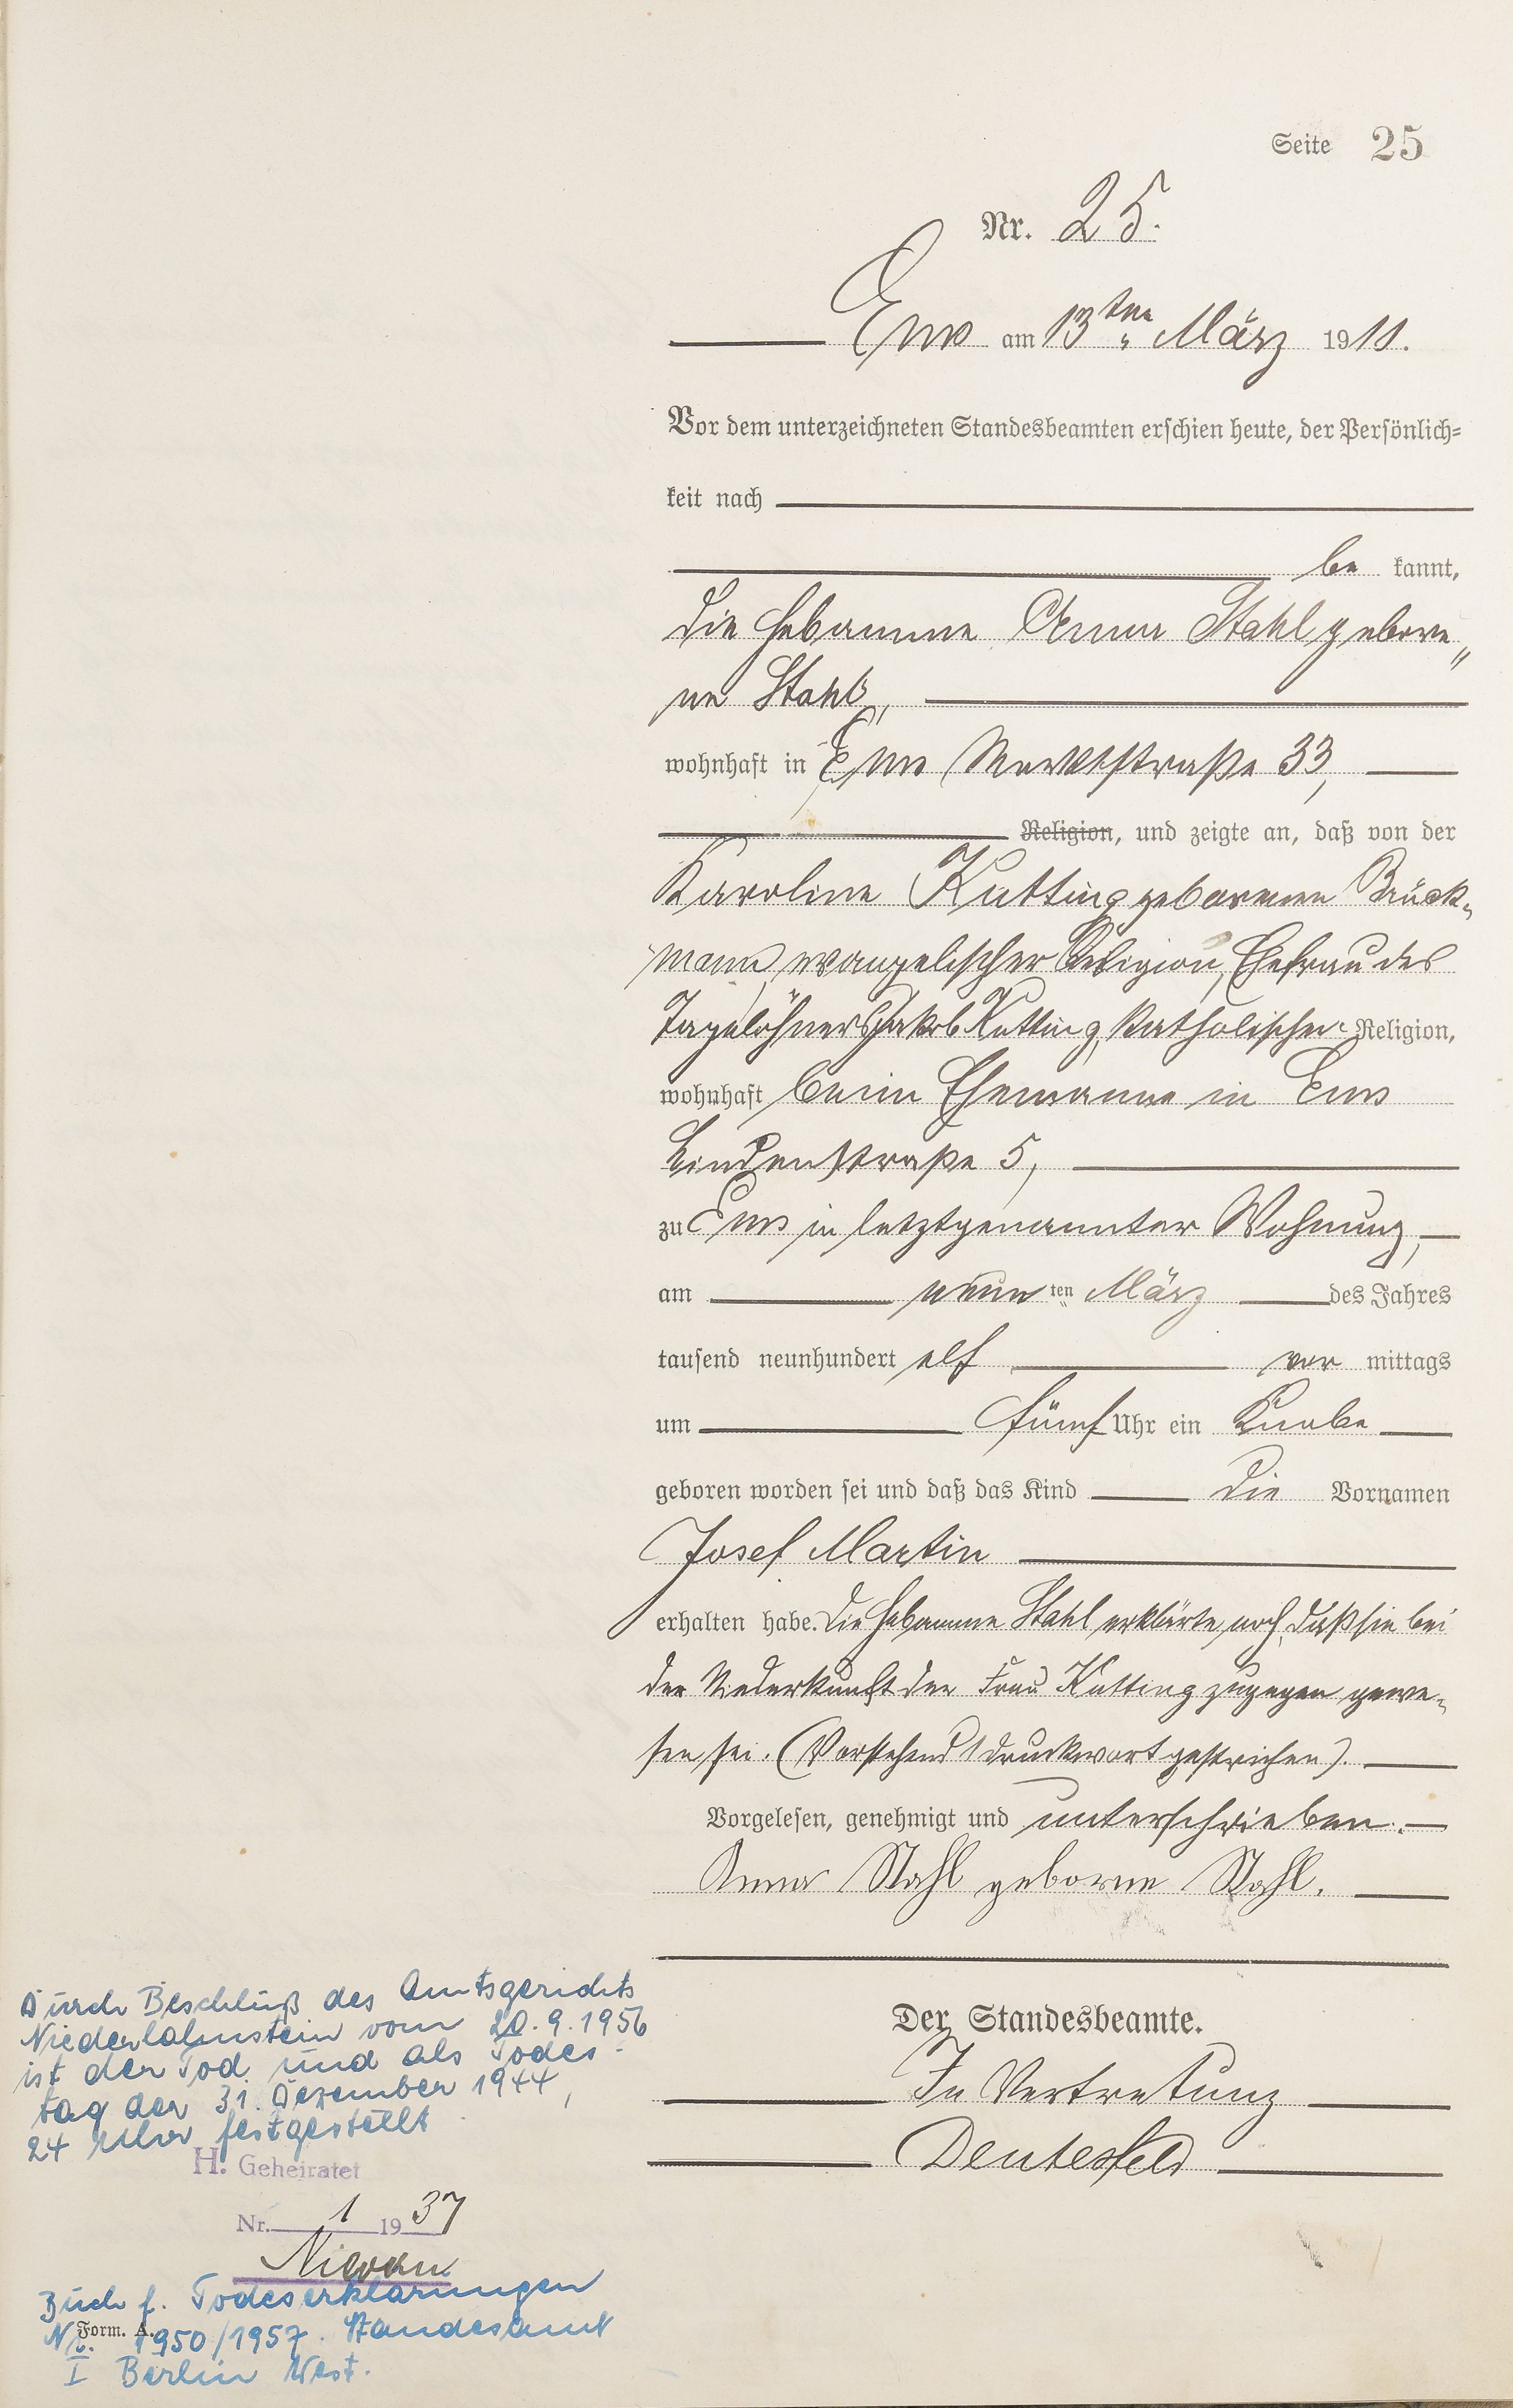 Seite 25
Nr. 25.
Ems am 13ten März 1911.
Vor dem unterzeichneten Standesbeamten erschien heute, der Persönlich=
keit nach
be kannt,
die Hebamme Anna Stahl gebore„
ne Stahl,
wohnhaft in Ems Marktstraße 33,
Religion, und zeigte an, daß von der
Karoline Kutting geborenen Brück-
mann, evangelischer Religion, Ehefrau des
Tagelöhners Jakob Kutting, katholischer Religion,
wohnhaft beim Ehemanne in Ems
Lindenstraße 5,
zu Ems in letztgenannter Wohnung,
am neun ten März des Jahres
tausend neunhundert elf vor mittags
um fünf Uhr ein Knabe
geboren worden sei und daß das Kind die Vornamen
Josef Martin
erhalten habe. Die Hebamme Stahl erklärte noch, daß sie bei
der Niederkunft der Frau Kutting zugegen gewe-
sen sei. (Vorstehend 1 Druckwort gestrichen).
Vorgelesen, genehmigt und unterschrieben.
Anna Stahl geborne Stahl.
Der Standesbeamte.
In Vertretung
Deutesfeld
Durch Beschluß des Amtsgerichts
Niederlahnstein vom 20.9.1956
ist der Tod und als Todes-
tag der 31. Dezember 1944,
24 Uhr festgestellt
H. Geheiratet
Nr. 1 1937
Nievern
Buch f. Todeserklärungen
Nr. 1950/1957. Standesamt
I Berlin West.
Form. A.